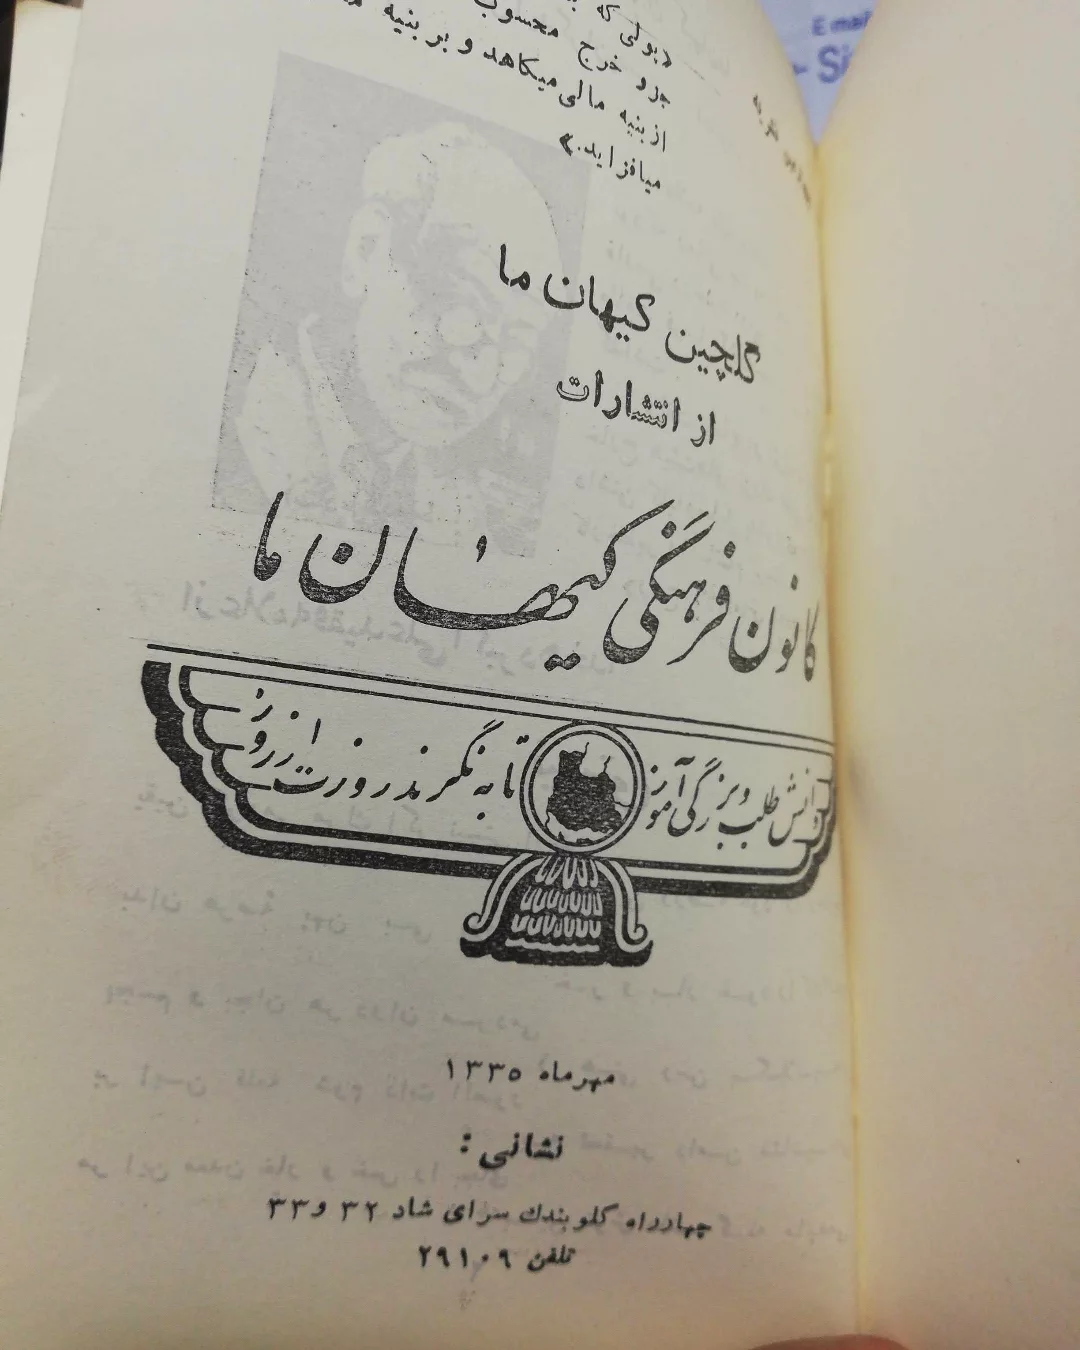 «پولی که
جزو خرج محسوب
از بنیه مالی میکاهد و بر بنیه
میافزاید.»
گلچین کیهان ما
از انتشارات
کانون فرهنگی کیهان ما
دانش طلب و بزرگی آموز
تا به نگرند روزت از روز
مهرماه ۱۳۳۵
نشانی :
چهارراه گلوبندك سرای شاد ۳۲ و۳۳
تلفن ۲۹۱۰۹